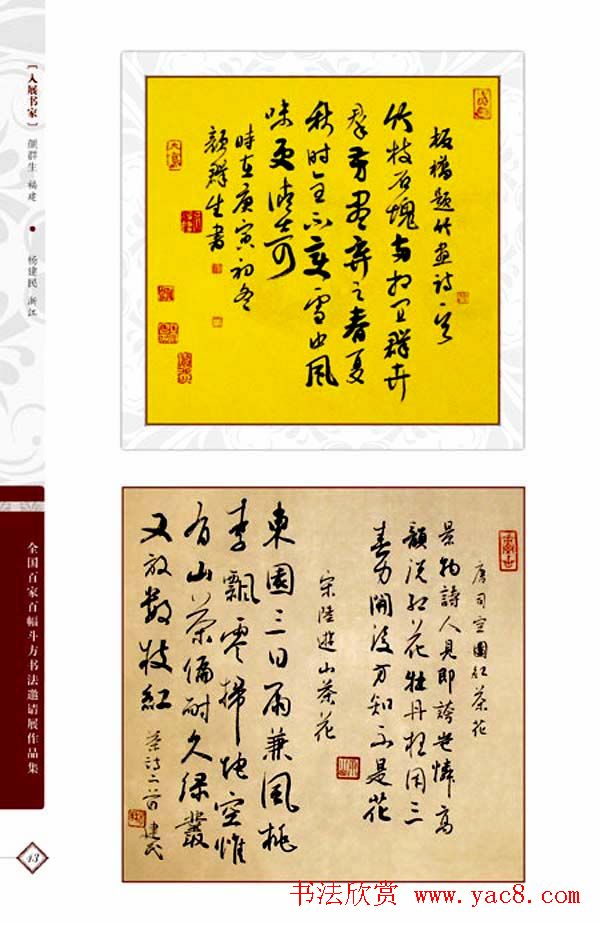 [入展书家]
颜群生 福建
杨建民 浙江
全国百家百幅斗方书法邀请展作品集
43
板橋題竹画诗一首
竹枝石塊两相宜群卉
群芳尽弃之春夏
秋时全不变雪中風
味更清奇
時在庚寅初冬
颜群生書
唐司空圖红茶花
景物詩人見即誇豈憐高
韻说红花牡丹枉用三
春力開得方知不是花
宋陸遊山茶花
東園三日雨兼風桃
李飄零掃地空惟
有山茶偏耐久绿叢
又放數枝紅
茶诗二首 建民
书法欣赏 www.yac8.com